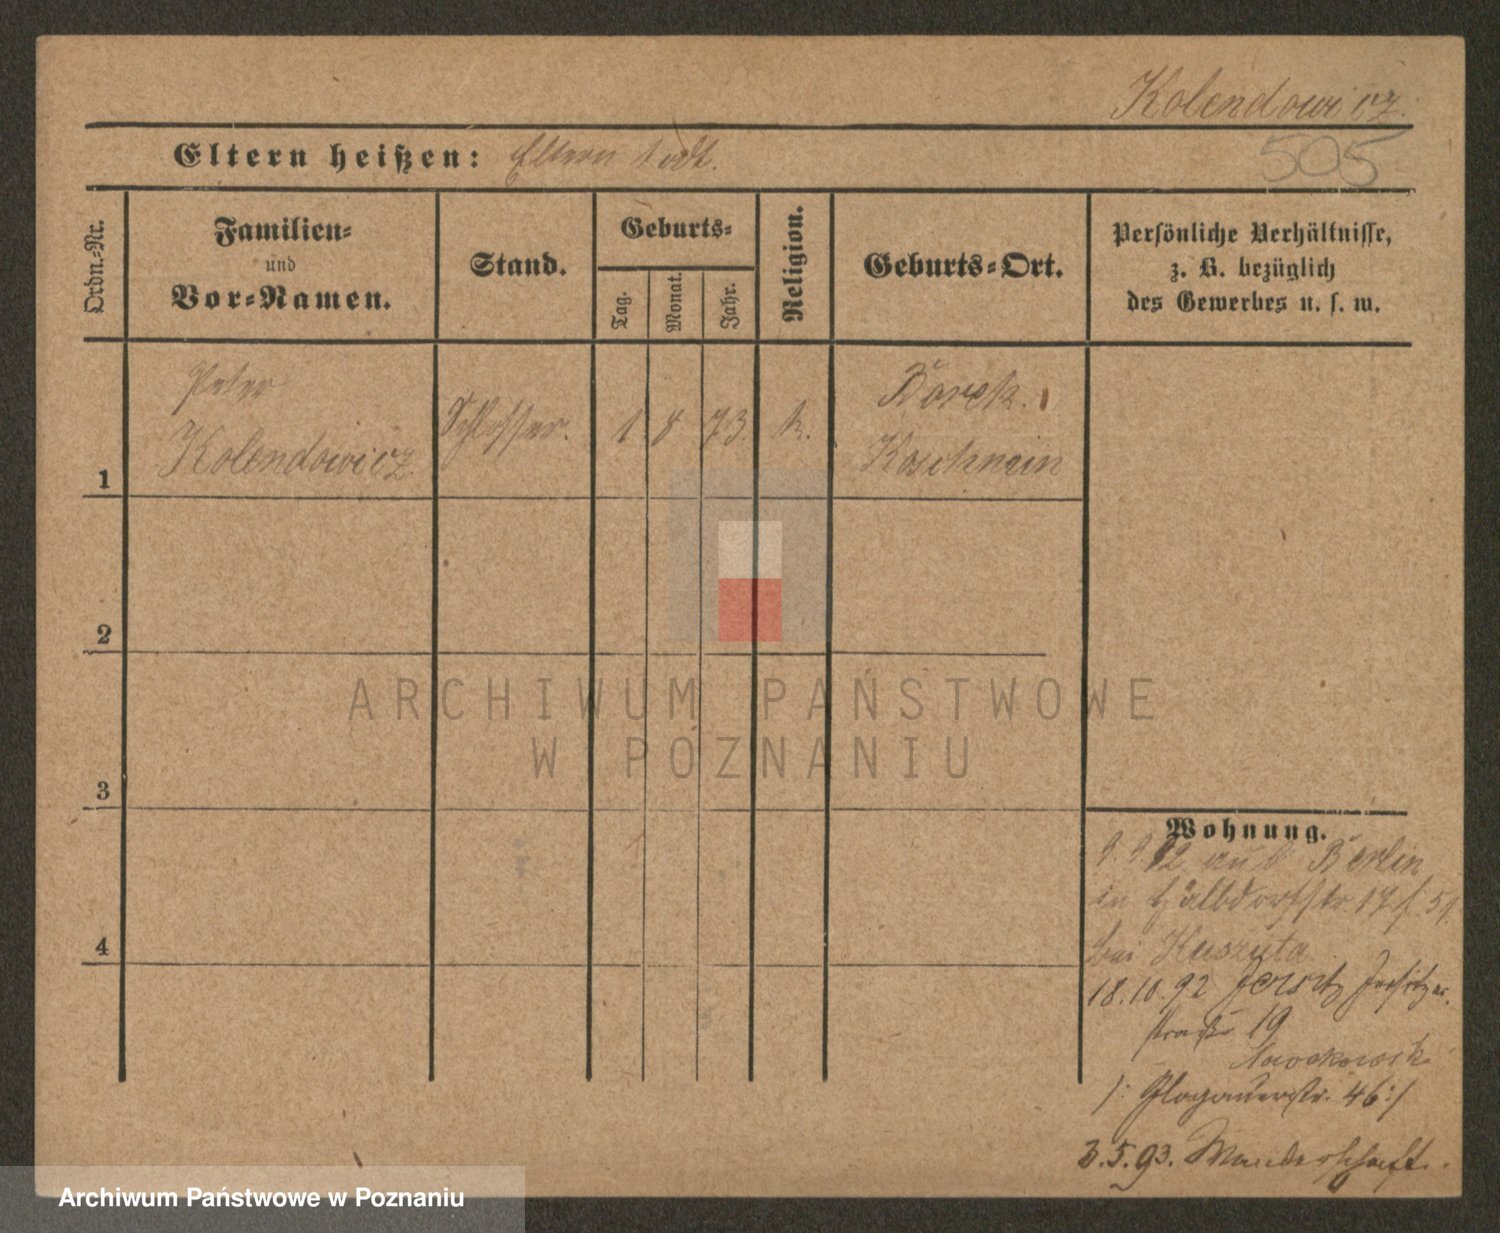 Kolendowicz.
505
Eltern heißen: Eltern todt.
Ordn.-Nr.
Familien-
und
Vor-Namen.
Stand.
Geburts-
Tag.
Monat.
Jahr.
Religion.
Geburts-Ort.
Persönliche Verhältnisse,
z. B. bezüglich
des Gewerbes u. s. w.
1
Peter
Kolendowicz
Schlosser.
1 8 73.
k.
Borek.
Koschmin
2
3
4
ARCHIWUM PAŃSTWOWE
W POZNANIU
Wohnung.
9.9.92 aus Berlin
in Halbdorfstr 17
bei Kaszuta
18.10.92 Jersitz Jersitzer
straße 19
Nowakowski
/: Glogauerstr. 46 :/
3.5.93. Wanderschaft.
Archiwum Państwowe w Poznaniu